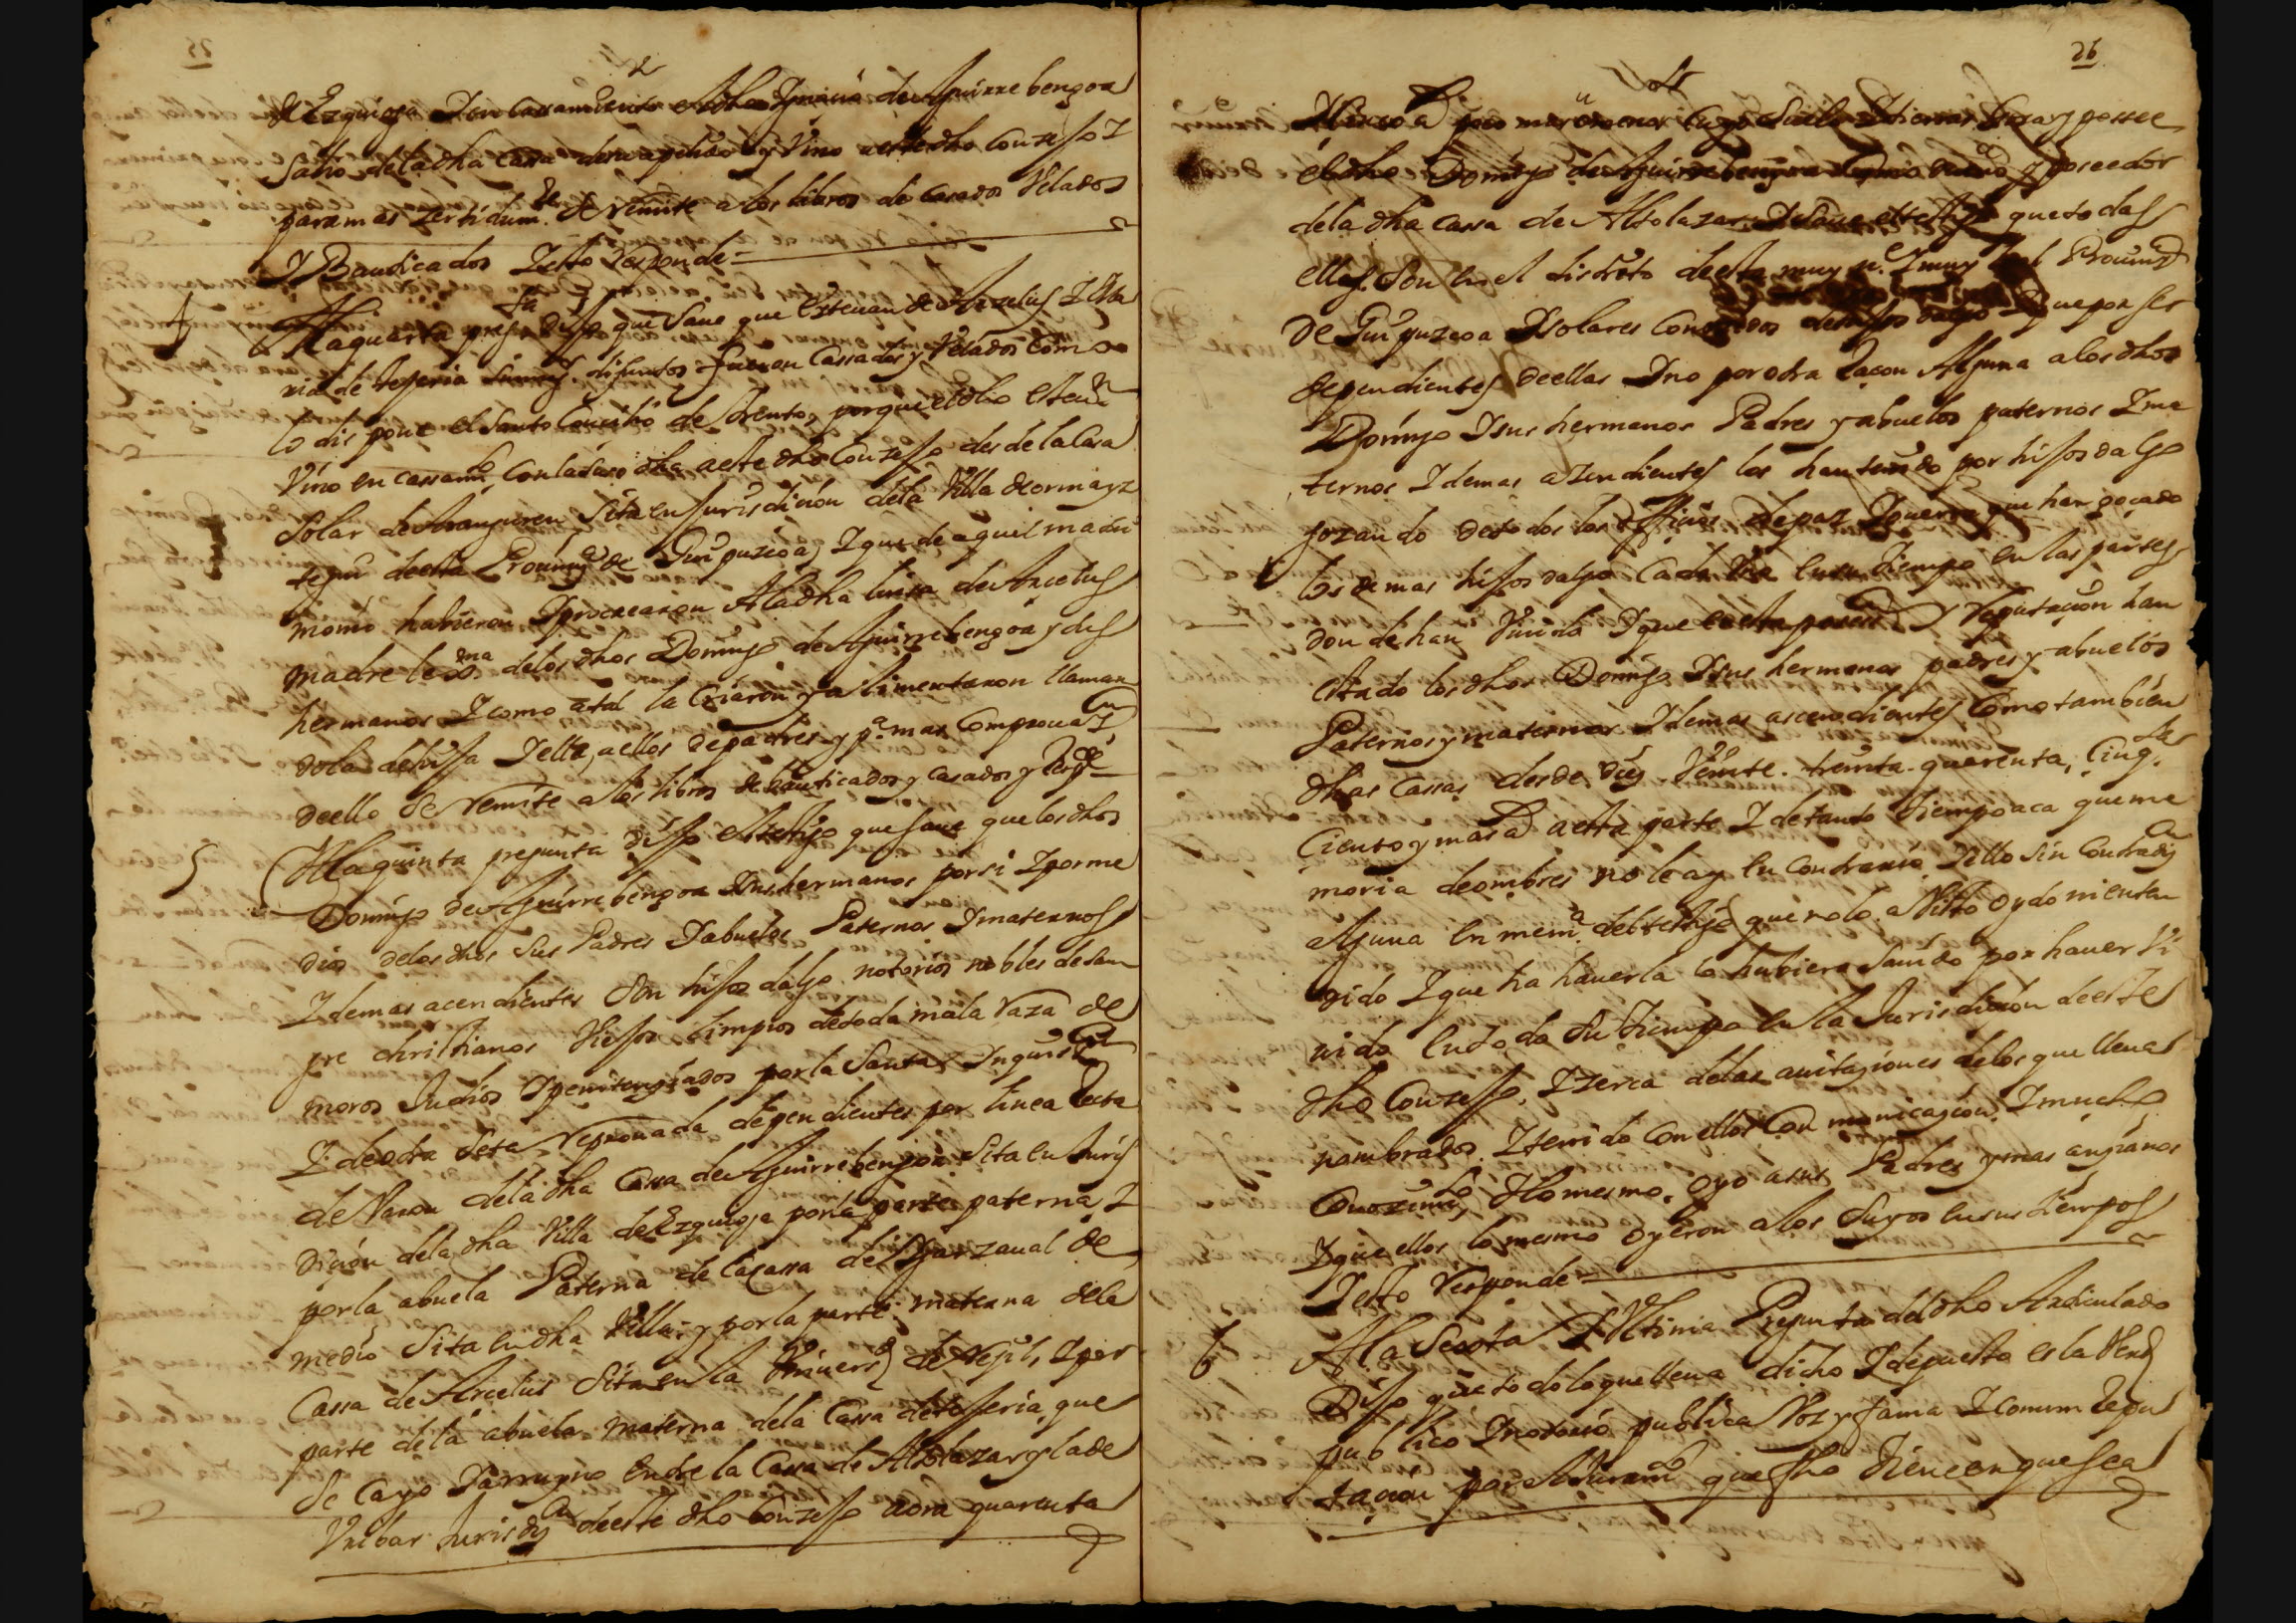 de Ezquioga Don Cassamiento el dho Ignacio de Aguirrebengoa
Salio de la dha Cassa de su apellido y Vino a este dho Conzejo I
para mas Zertidumre Se remite a los libros de Casados Velados
I Bauticados I esto Responde
4 A la quarta pregta dijo que Saue que esteuan de Arzelus I Ma
ria de tejeria difuntos fueron Cassados y Velados Como
lo dispone el Santo Concilio de Trento, porque el dho esteuan
Vino en cassamto Con la Suso dha a este dho Conzejo desde la Casa
Solar de Aranguren Sita en Jurisdicion de la Villa de ormayz
tegui de esta Prouincia de Guipuzcoa, I que de aquel matri
monio hubieron I procrearon A la dha luisa de Arcelus
madre lexma de los dhos Domingo de Aguirrebengoa y sus
hermanos I como a tal la Criaron y alimentaron llaman
dola de hija I ella, a ellos de padres y pa mas Comprouaon
de ello Se remite a los libros de Bauticados y casados y Respde
5 A la quinta pregunta dijo el testigo que saue que los dhos
Domingo de Aguirrebengoa I sus hermanos por si I por me
dio de los dhos sus Padres I abuelos Paternos I maternos
I demas acendientes Son hijos dalgo notorios nobles de Sam
pre christianos Viejos limpios de toda mala raza de
moros Judios I penitenciados por la Santa Inquision
I de otra Seta reprouada dependientes por linea Recta
de Varon de la dha Cassa de Aguirrebengoa Sita en Juris
dicion de la dha Villa de Ezquioga por la parte paterna, I
por la abuela Paterna de la Cassa de Ygarzaual de
medio Sita en dha Villa, y por la parte materna de la
Cassa de Arcelus Sita en la Vniuersd de Nejil, I por
parte de la abuela materna de la Cassa de tejeria que
Se Cayo I arruyno Entre la Cassa de Altolazar y la de
Vribar Jurison de este dho Conzejo aora quarenta
26
años poco mas o menos Cuyo Suelo I tierras Goza y possee
el dho Domingo de Aguirrebengoa como dueño y poseedor
de la dha Cassa de Altolazar I Saue el testigo que todas
ellas Son en el distrito de esta muy n. I muy leal Prouincia
de Guipuzcoa I solares Conocidos de hijos dalgo I que por ser
dependientes de ellas I no por otra Racon Alguna a los dhos
Domingo I sus hermanos Padres y abuelos paternos I ma
ternos I demas azendientes los han tenido por hijos dalgo
gozando de todos los officios de paz I guerra que han gocado
los demas hijos dalgo Cada Vno en su tiempo en las partes
donde han Viuido I que en esta posesion y Reputacion han
estado los dhos Domingo I sus hermanos padres y abuelos
Paternos y maternos I demas ascendientes Como tambien las
dhas Cassas desde diez. Veinte. treinta. quarenta, Cinqta
Ciento y mas as a esta parte I de tanto tiempo aca que me
moria de ombres no lo ay en contrario I ello sin Contradion
Alguna en mema del testigo que no lo a Visto oydo ni enten
gido I que ha hauerla lo hubiera Sauido por hauer Vi
uido en todo Su tiempo en la Jurisdicion de este
dho Conzejo, I zerca de las auitaciones de los que lleua
nombrados. I tenido Con ellos Comunicacion. I mucho
Conozimto, I lo mesmo. oyo a sus Padres y mas ancianos
I que ellos lo mesmo oyeron a los Suyos en sus tiempos
I esto Responde
6 A la Sexta I Vltima Pregunta del dho Articulado
Dijo que todo lo que lleua dicho I depuesto es la Verd
publico I notorio publica Voz y fama I comun Repu
tacion para el Juramto que fho tiene en que Sea